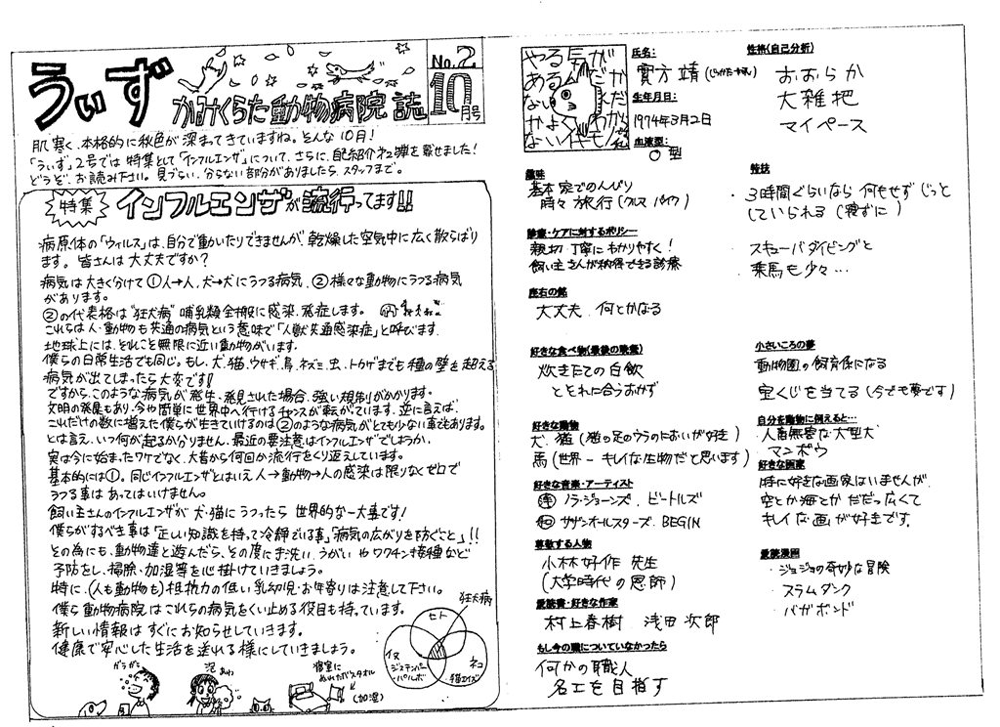 うぃず
かみくらた動物病院 誌
No.2
10月号
肌寒く、本格的に秋色が深まってきていますね。そんな10月！
「うぃず」2号では特集として「インフルエンザ」について、さらに、自己紹介第2弾を載せました！
どうぞ、お読み下さい。見づらい、分らない部分がありましたら、スタッフまで。
特集 インフルエンザが流行ってます!!
病原体の「ウィルス」は、自分で動いたりできませんが、乾燥した空気中に広く散らばり
ます。皆さんは大丈夫ですか？
病気は大きく分けて①人→人、犬→犬にうつる病気、②様々な動物にうつる病気
があります。
②の代表格は"狂犬病" 哺乳類全般に感染、発症します。
これらは人・動物も共通の病気という意味で「人獣共通感染症」と呼びます。
地球上には、それこそ無限に近い動物がいます。
僕らの日常生活でも同じ。もし、犬、猫、ウサギ、鳥、ネズミ、虫、トカゲまでも種の壁を超える
病気が出てしまったら大変です!!
ですから、このような病気が発生・発見された場合、強い規制がかかります。
文明の発展もあり、今や簡単に世界中へ行けるチャンスが転がっています。逆に言えば、
これだけの数に増えた僕らが生きていけるのは②のような病気がとても少ない事でもあります。
とは言え、いつ何が起るか分りません。最近の要注意はインフルエンザでしょうか。
実は今に始まったワケでなく、大昔から何回か流行をくり返えしています。
基本的には①。同じインフルエンザとはいえ人→動物→人の感染は限りなくゼロで
うつる事はあってはいけません。
飼い主さんのインフルエンザが犬・猫にうつったら世界的な一大事です！
僕らがすべき事は「正しい知識を持って冷静でいる事」「病気の広がりを防ぐこと」!!
その為にも、動物達と遊んだら、その度に手洗い、うがい やワクチン接種など
予防をし、掃除・加湿等を心掛けていきましょう。
特に、（人も動物も）抵抗力の低い乳幼児・お年寄りは注意して下さい。
僕ら動物病院はこれらの病気をくい止める役目も持っています。
新しい情報はすぐにお知らせしていきます。
健康で安心した生活を送れる様にしていきましょう。
狂犬病
ヒト
イヌ
ジステンパー
・パルボ
ネコ
猫エイズ
ガラガラ
泡
寝室に
ぬれたバスタオル
(加湿)
やる気が
あるんだか
ないんだ
かよくわから
ないイキモノ
氏名：
貴方 靖
生年月日：
1974年3月2日
血液型：
O型
趣味
基本 家でのんびり
時々 旅行（クルマ バイク）
診療・ケアに対するポリシー
親切 丁寧にわかりやすく！
飼い主さんが納得できる診療
座右の銘
大丈夫、何とかなる
好きな食べ物（最後の晩餐）
炊きたての白飯
とそれに合うおかず
好きな動物
犬、猫（猫の足のウラのにおいが好き）
馬（世界一 キレイな生物だと思います）
好きな音楽・アーティスト
洋 ノラ・ジョーンズ、ビートルズ
和 サザンオールスターズ、BEGIN
尊敬する人物
小林 好作 先生
（大学時代の恩師）
愛読書・好きな作家
村上春樹 浅田次郎
もし今の職についていなかったら
何かの職人
名工を目指す
性格（自己分析）
おおらか
大雑把
マイペース
特技
・3時間ぐらいなら何もせずじっと
していられる（寝ずに）
・スキューバダイビングと
乗馬も少々…
小さいころの夢
動物園の飼育係になる
宝くじを当てる（今でも夢です）
自分を動物に例えると…
人畜無害な大型犬
マンボウ
好きな画家
特に好きな画家はいませんが、
空とか海とかだだっ広くて
キレイな画が好きです。
愛読漫画
・ジョジョの奇妙な冒険
スラムダンク
バガボンド